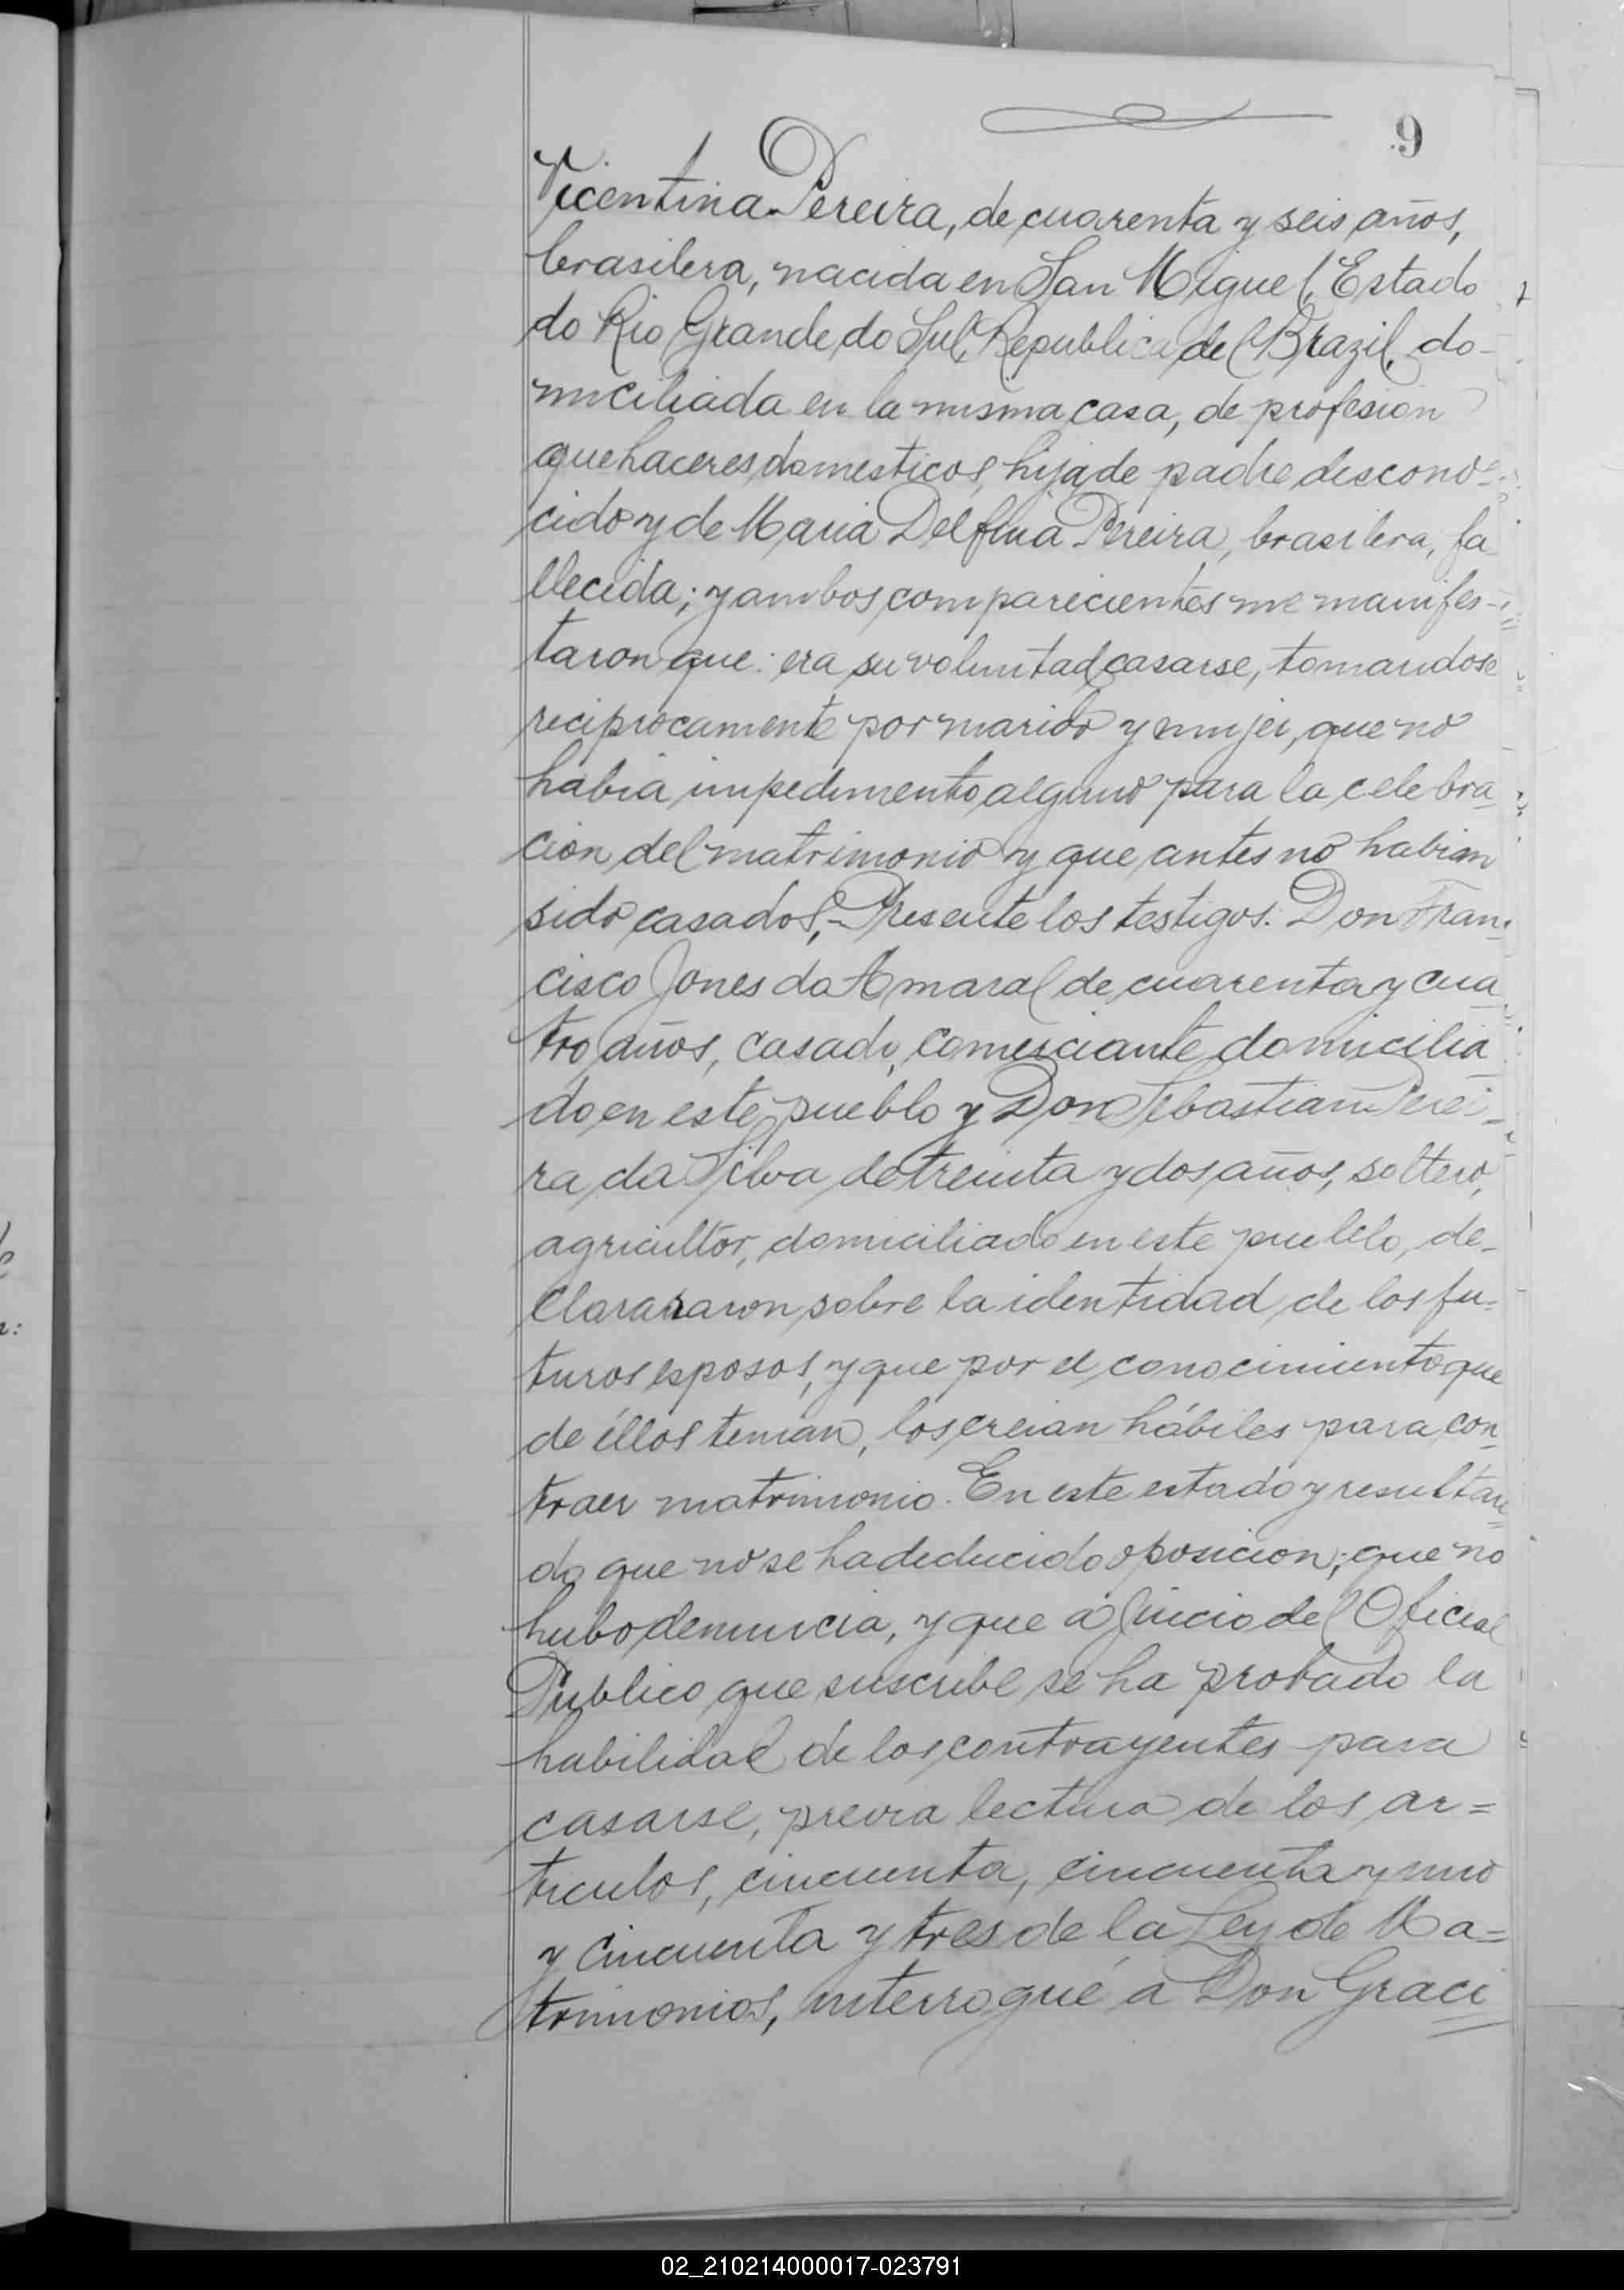 9
Vicentina Pereira, de cuarenta y seis años,
brasilera, nacida en San Miguel, Estado
do Rio Grande do Sul, Republica del Brazil, do-
miciliada en la misma casa, de profesion
quehaceres domesticos, hija de padre descono-
cido y de Maria Delfina Pereira, brasilera, fa
llecida; y ambos comparecientes me manifes-
taron que: era su voluntad casarse, tomandose
reciprocamente por marido y mujer, que no
habia impedimento alguno para la celebra-
cion del matrimonio y que antes no habian
sido casados,- Presente los testigos: Don Fran-
cisco Jones do Amaral de cuarenta y cua
tro años, casado, comerciante domicilia
do en este pueblo y Don Sebastian Perei-
ra da Silva de treinta y dos años, soltero,
agricultor, domiciliado en este pueblo, de-
clararon sobre la identidad de los fu-
turos esposos, y que por el conocimiento que
de éllos tenian, los creian hábiles para con
traer matrimonio. En este estado y resultan
do que no se ha deducido oposicion; que no
hubo denuncia, y que á juicio del Oficial
Publico que suscribe se ha probado la
habilidad de los contrayentes para
casarse, previa lectura de los ar=
ticulos, cincuenta, cincuenta y uno
y cincuenta y tres de la Ley de Ma=
trimonios, interrogué á Don Graci
02_210214000017-023791